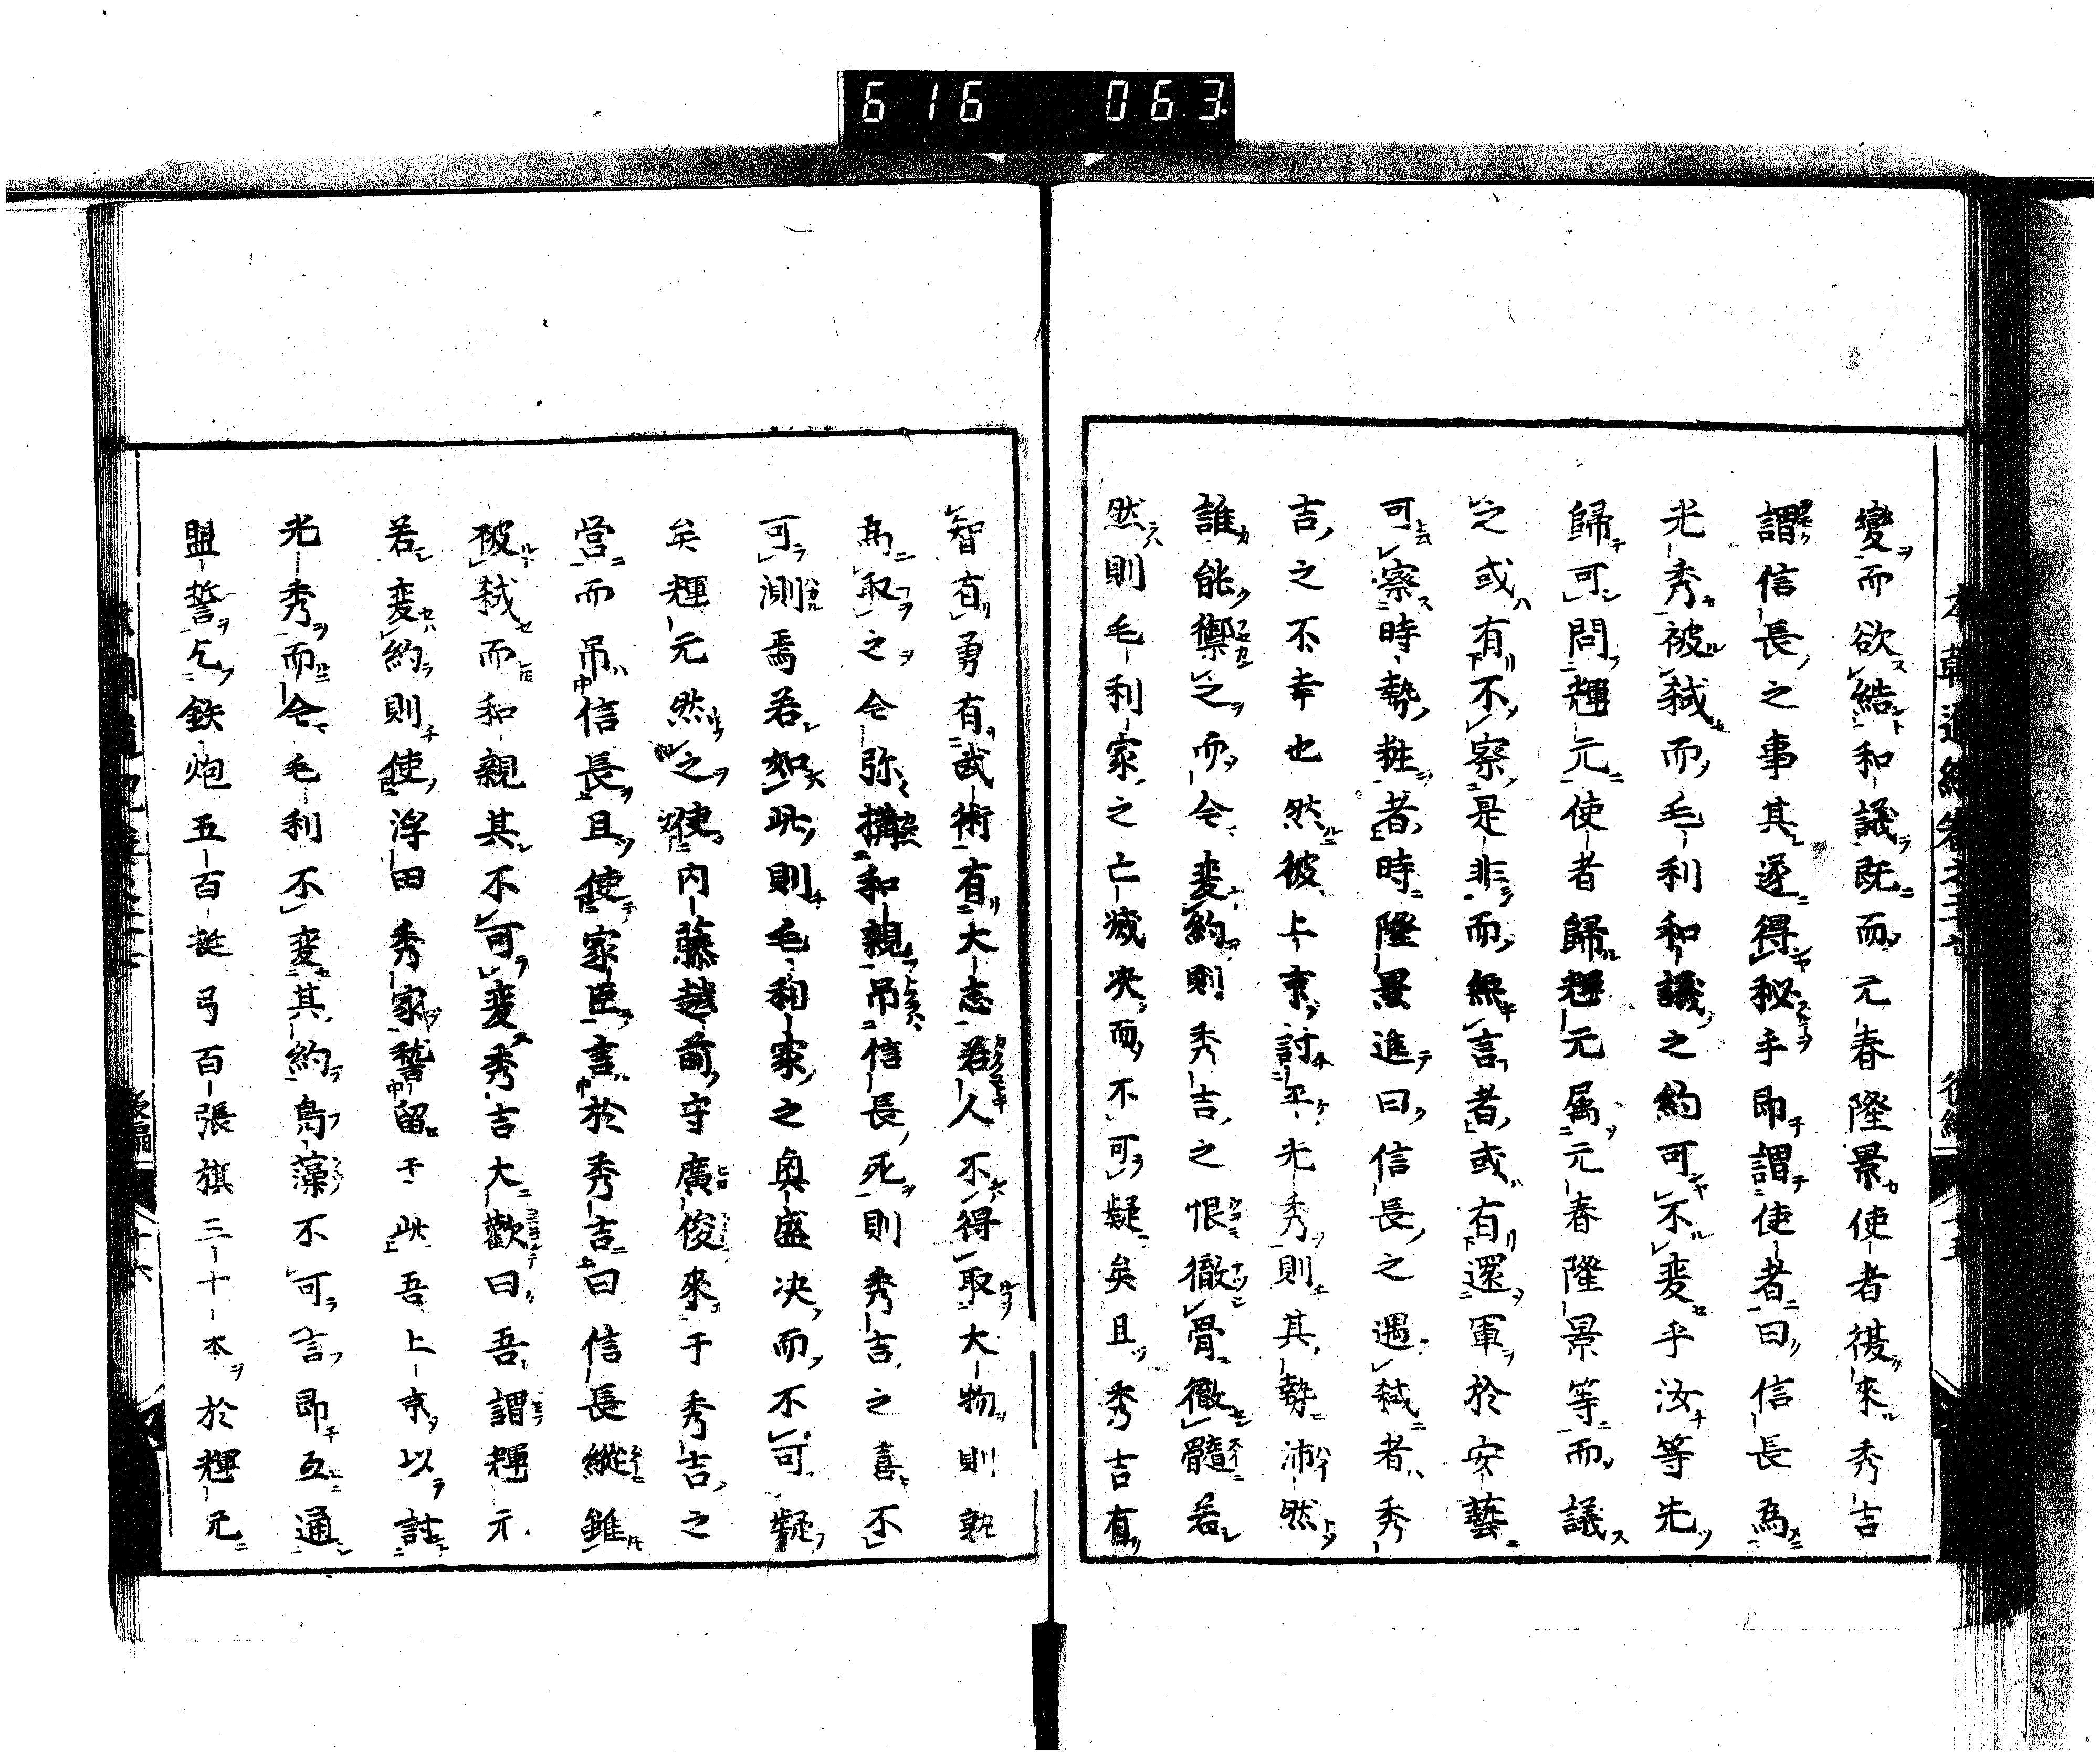 616 063
變而欲結和議既而元春隆景使者復來秀吉
謂信長之事其遂得秘乎即謂使者曰信長為
光秀被弑而毛利和議之約可不変乎汝等先
歸可問輝元使者歸輝元属元春隆景等而議
之或有不察是非而無言者或有還軍於安藝
可察時勢粧者時隆景進曰信長之遇弑者秀
吉之不幸也然彼上京討平光秀則其勢沛然
誰能禦之而今変約則秀吉之恨徹骨徹髓若
然則毛利家之亡滅决而不可疑矣且秀吉有
智有勇有武術有大志若人不得取大物則孰
為取之今弥搆和親吊信長死則秀吉之喜不
可測焉若如此則毛利家之奥盛决而不可疑
矣輝元然之使内藤越前守廣俊來于秀吉之
営而吊信長且使家臣言於秀吉曰信長縱雖
被弑而和親其不可変秀吉大歡曰吾謂輝元
若変約則使浮田秀家暫留于此吾上京以討
光秀而今毛利不変其約鳥藻不可言即互通
盟誓乞鉄炮五百挺弓百張旗三十本於輝元